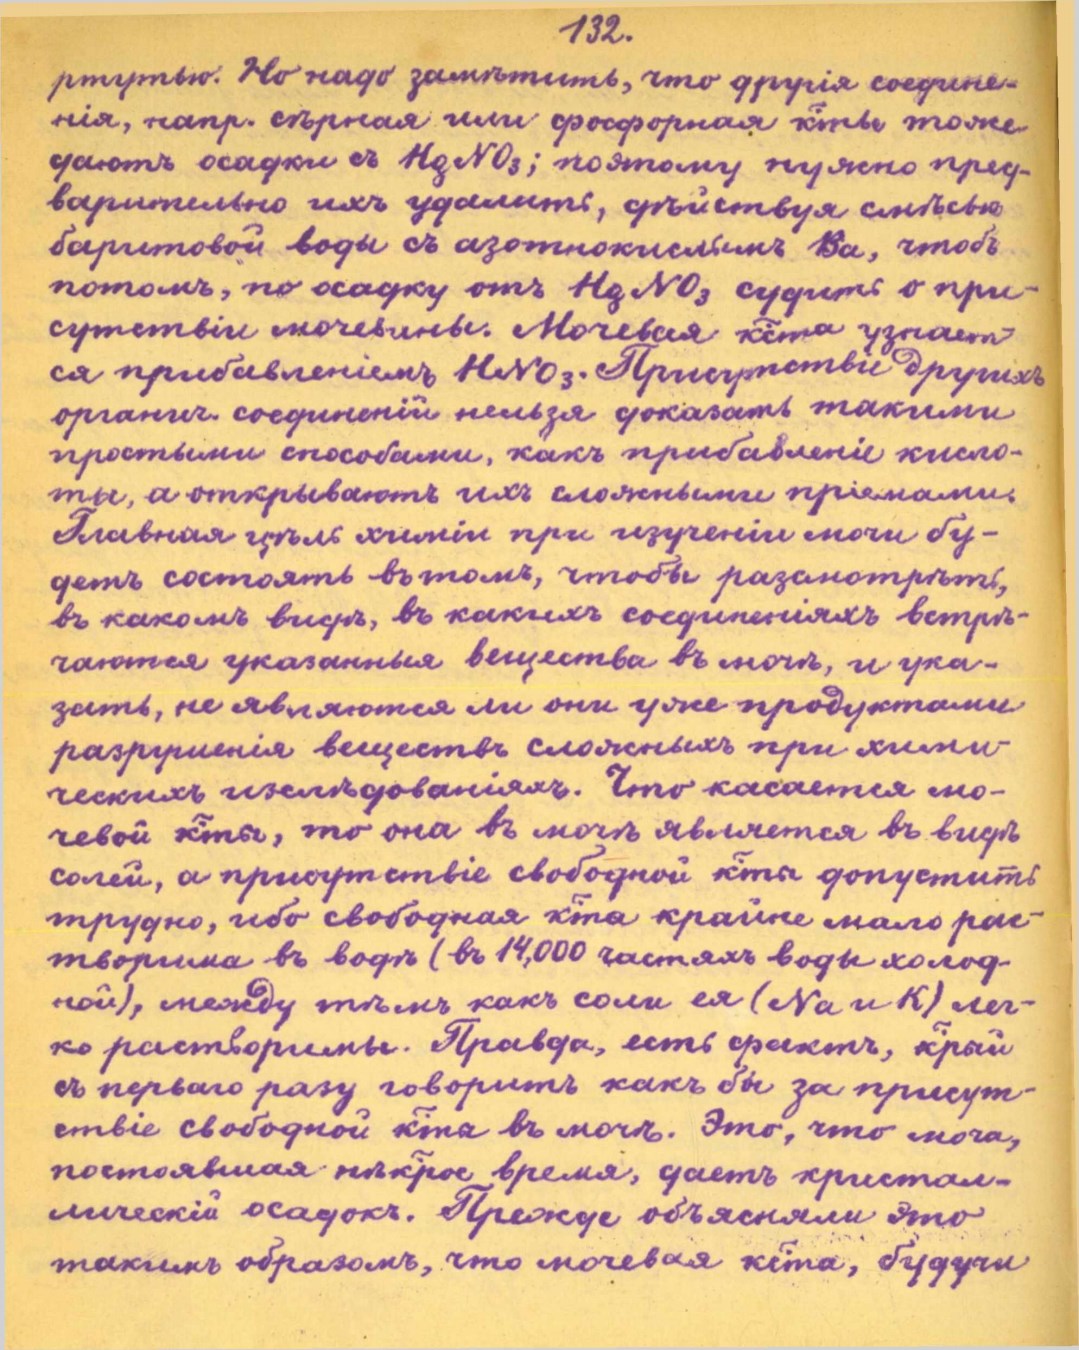 132.
ртутью. Но надо замѣтить, что другія соедине-
нія, напр. сѣрная или фосфорная к̅ты тоже
даютъ осадки съ HgNO₃; поэтому нужно пред-
варительно ихъ удалить, дѣйствуя смѣсью
баритовой воды съ азотнокислымъ Ba, чтобъ
потомъ, по осадку отъ HgNO₃ судить о при-
сутствіи мочевины. Мочевая к̅та узнает-
ся прибавленіемъ HNO₃. Присутствіе другихъ
органич. соединеній нельзя доказать такими
простыми способами, какъ прибавленіе кисло-
ты, а открываютъ ихъ сложными пріемами.
Главная цѣль химіи при изученіи мочи бу-
детъ состоять въ томъ, чтобы разсмотрѣть,
въ какомъ видѣ, въ какихъ соединеніяхъ встрѣ-
чаются указанныя вещества въ мочѣ, и ука-
зать, не являются ли они уже продуктами
разрушенія веществъ сложныхъ при хими-
ческихъ изслѣдованіяхъ. Что касается мо-
чевой к̅ты, то она въ мочѣ является въ видѣ
солей, а присутствіе свободной к̅ты допустить
трудно, ибо свободная к̅та крайне мало рас-
творима въ водѣ (въ 14,000 частяхъ воды холод-
ной), между тѣмъ какъ соли ея (Na и K) лег-
ко растворимы. Правда, есть фактъ, к̅рый
съ перваго разу говоритъ какъ бы за присут-
ствіе свободной к̅ты въ мочѣ. Это, что моча,
постоявшая нѣк̅рое время, даетъ кристал-
лическій осадокъ. Прежде объясняли это
такимъ образомъ, что мочевая к̅та, будучи